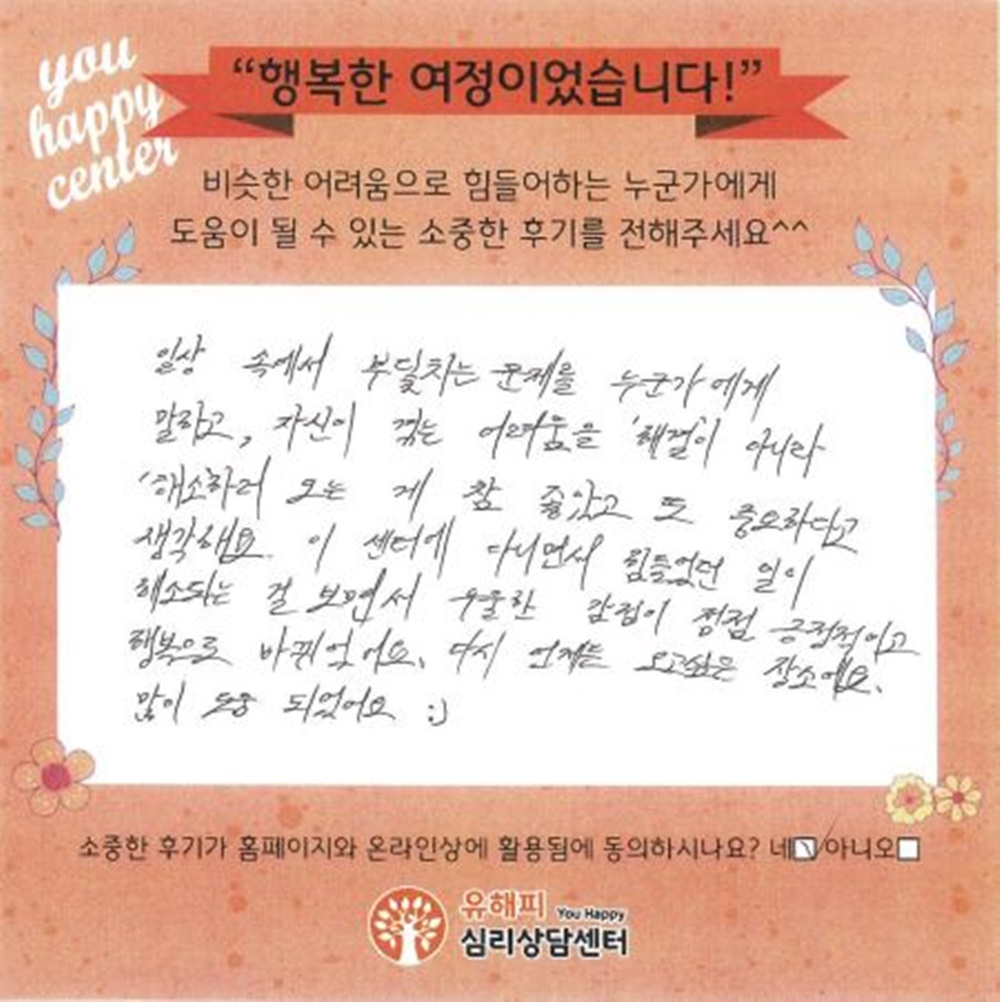 you
happy
center
“행복한 여정이었습니다!”
비슷한 어려움으로 힘들어하는 누군가에게
도움이 될 수 있는 소중한 후기를 전해주세요^^
일상 속에서 부딪치는 문제를 누군가에게
말하고, 자신이 겪는 어려움을 '해결'이 아니라
'해소'하러 오는 게 참 좋았고 또 중요하다고
생각해요. 이 센터에 다니면서 힘들었던 일이
해소되는 걸 보면서 우울한 감정이 점점 긍정적이고
행복으로 바뀌었어요. 다시 언제든 오고싶은 장소예요.
많이 도움 되었어요 :)
소중한 후기가 홈페이지와 온라인상에 활용됨에 동의하시나요? 네 아니오
유해피 You Happy
심리상담센터